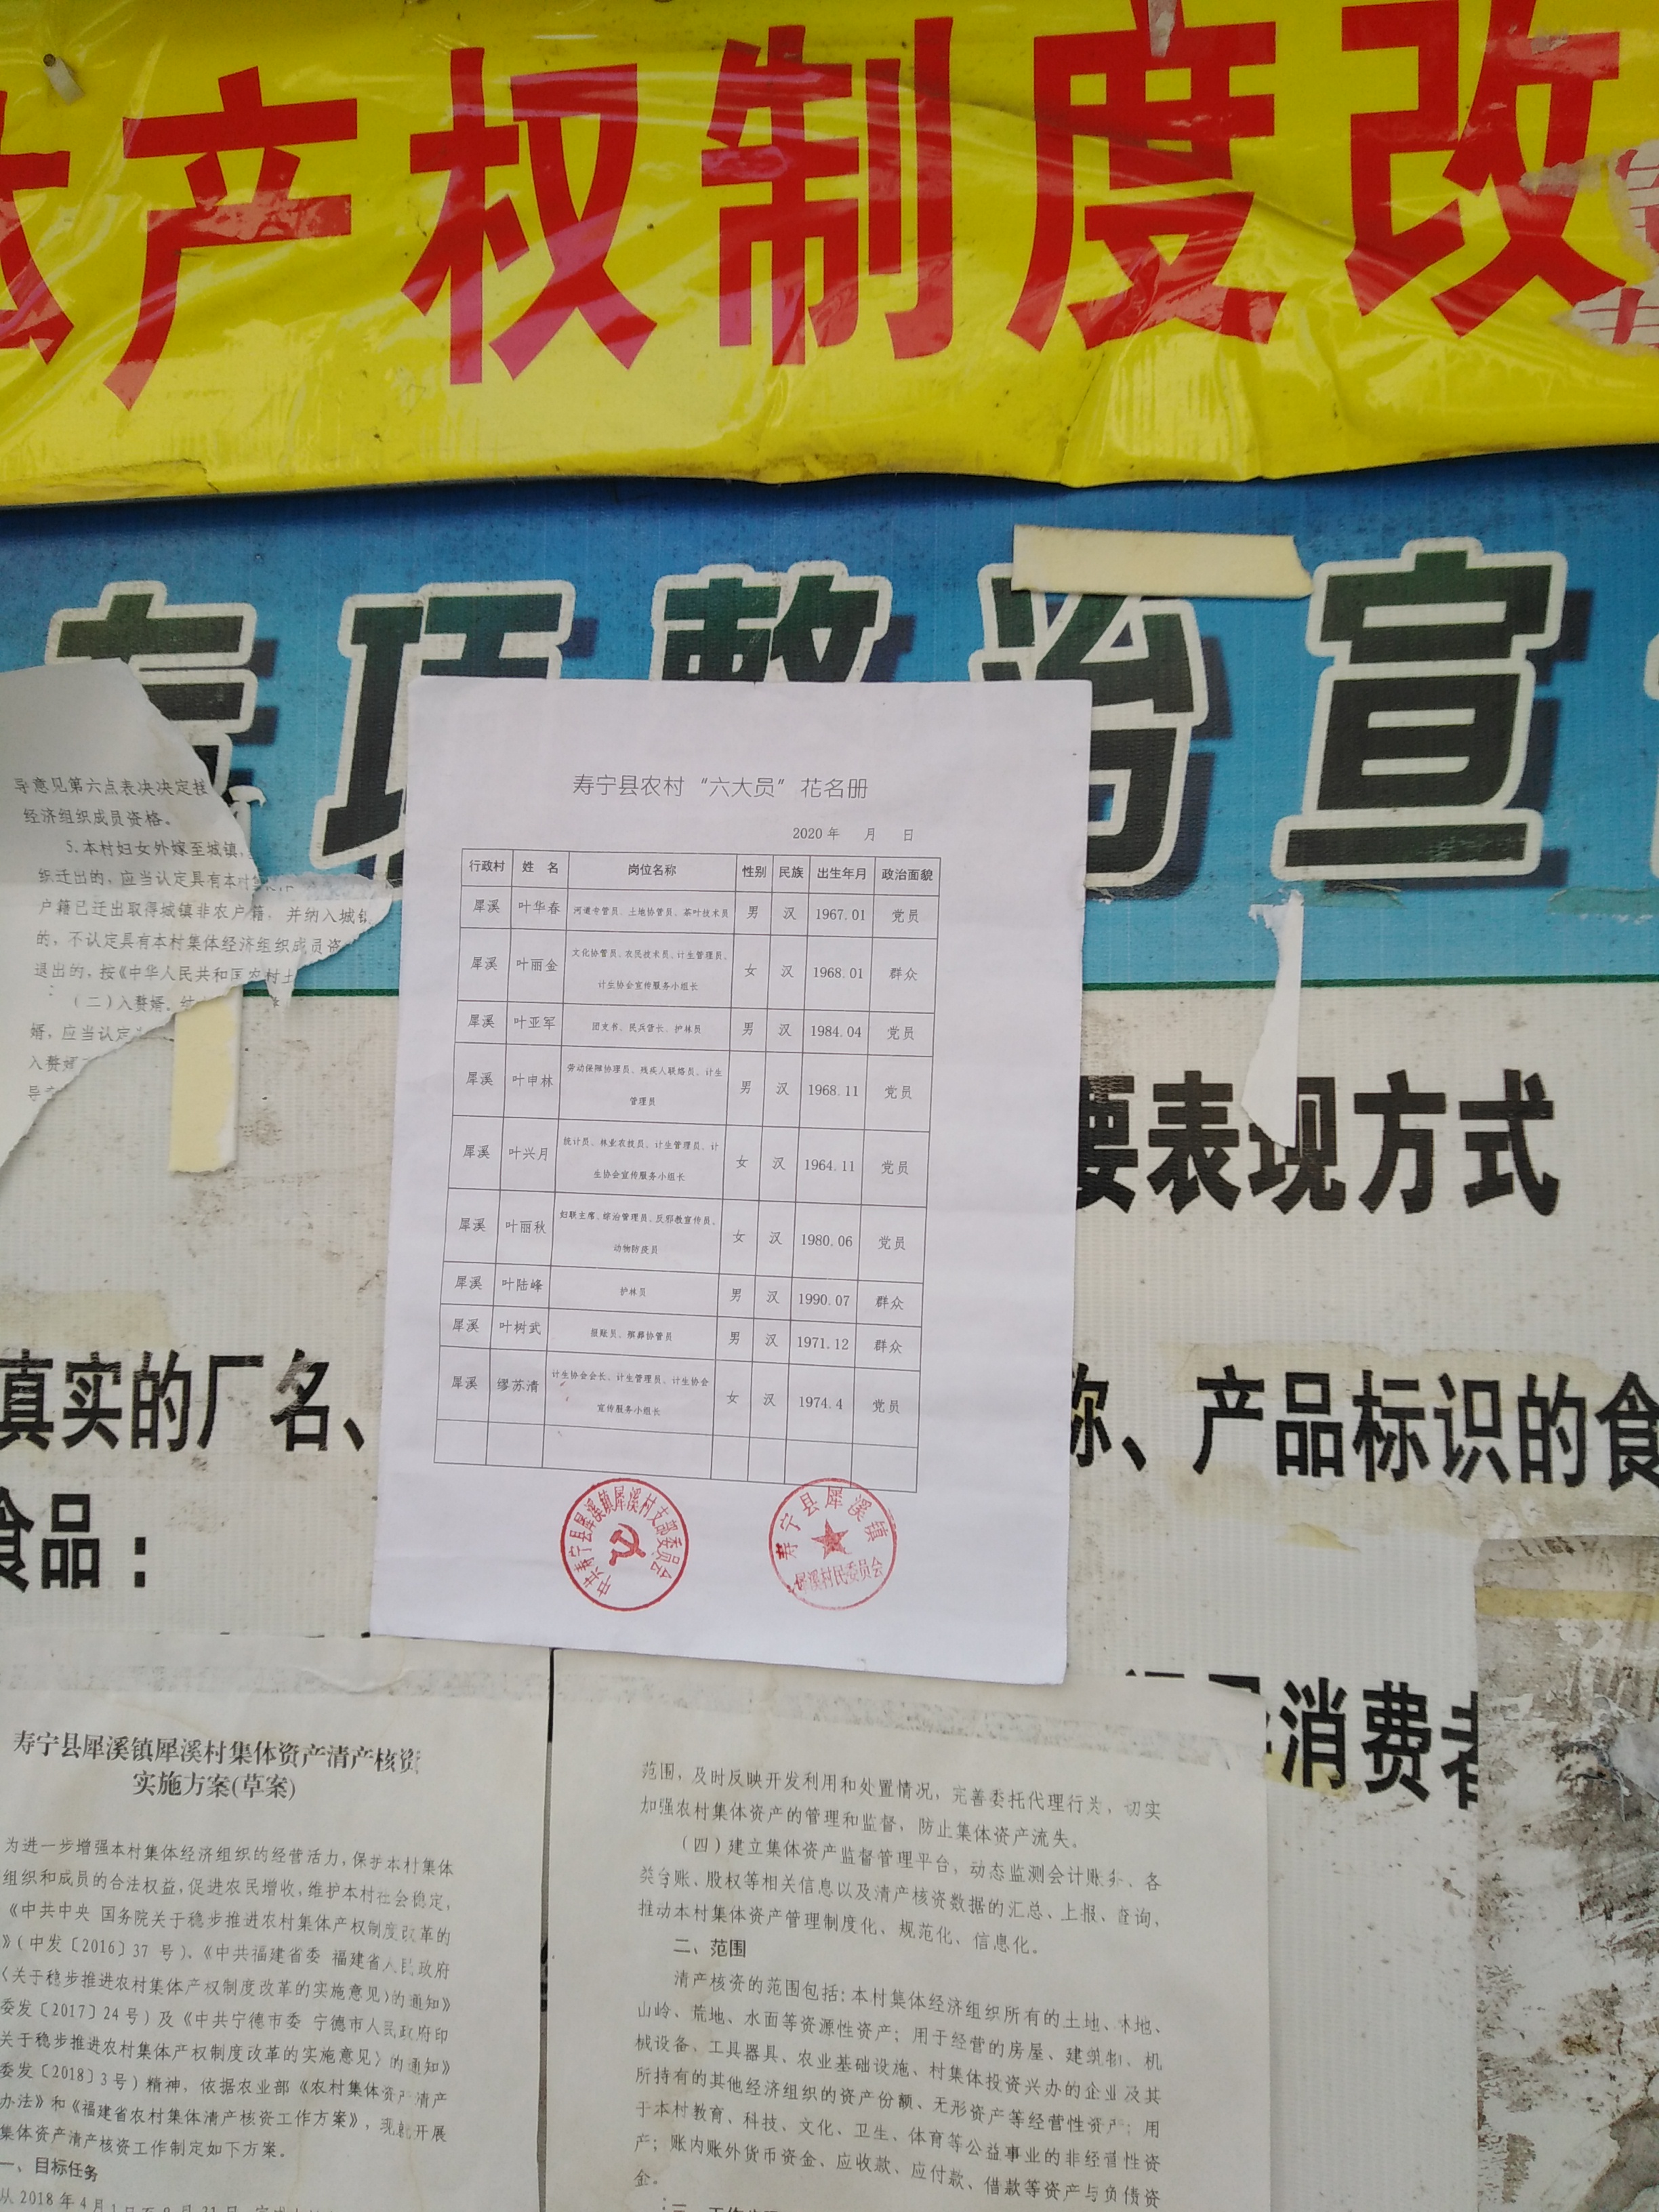 产权制度改
专项整治宣
导意见第六点表决决定
经济组织成员资格。
5.本村妇女外嫁至城镇,
织迁出的，应当认定具有本村
户籍已迁出取得城镇非农户籍，并纳入城镇
的，不认定具有本村集体经济组织成员资
退出的，按《中华人民共和国农村土
（二）入赘婿。
婿，应当认定
入赘婿
寿宁县农村“六大员”花名册
2020 年 月 日
行政村 姓 名 岗位名称 性别 民族 出生年月 政治面貌
犀溪 叶华春 河道专管员、土地协管员、茶叶技术员 男 汉 1967.01 党员
犀溪 叶丽金 文化协管员、农民技术员、计生管理员、计生协会宣传服务小组长 女 汉 1968.01 群众
犀溪 叶亚军 团支书、民兵营长、护林员 男 汉 1984.04 党员
犀溪 叶申林 劳动保障协理员、残疾人联络员、计生管理员 男 汉 1968.11 党员
犀溪 叶兴月 统计员、林业农技员、计生管理员、计生协会宣传服务小组长 女 汉 1964.11 党员
犀溪 叶丽秋 妇联主席、综治管理员、反邪教宣传员、动物防疫员 女 汉 1980.06 党员
犀溪 叶陆峰 护林员 男 汉 1990.07 群众
犀溪 叶树武 报账员、殡葬协管员 男 汉 1971.12 群众
犀溪 缪苏清 计生协会会长、计生管理员、计生协会宣传服务小组长 女 汉 1974.4 党员
中共寿宁县犀溪镇犀溪村支部委员会
寿宁县犀溪镇
犀溪村民委员会
要表现方式
真实的厂名、
称、产品标识的食
食品：
消费者
寿宁县犀溪镇犀溪村集体资产清产核资
实施方案(草案)
为进一步增强本村集体经济组织的经营活力,保护本村集体
组织和成员的合法权益,促进农民增收,维护本村社会稳定,
《中共中央 国务院关于稳步推进农村集体产权制度改革的
》(中发〔2016〕37 号)、《中共福建省委 福建省人民政府
〈关于稳步推进农村集体产权制度改革的实施意见〉的通知》
委发〔2017〕24 号) 及《中共宁德市委 宁德市人民政府印
关于稳步推进农村集体产权制度改革的实施意见〉的通知》
委发〔2018〕3号) 精神，依据农业部《农村集体资产清产
办法》和《福建省农村集体清产核资工作方案》，现就开展
集体资产清产核资工作制定如下方案。
一、目标任务
从 2018 年 4月1日至
范围，及时反映开发利用和处置情况，完善委托代理行为，切实
加强农村集体资产的管理和监督，防止集体资产流失。
（四）建立集体资产监督管理平台，动态监测会计账务、各
类台账、股权等相关信息以及清产核资数据的汇总、上报、查询，
推动本村集体资产管理制度化、规范化、信息化。
二、范围
清产核资的范围包括:本村集体经济组织所有的土地、林地、
山岭、荒地、水面等资源性资产；用于经营的房屋、建筑物、机
械设备、工具器具、农业基础设施、村集体投资兴办的企业及其
所持有的其他经济组织的资产份额、无形资产等经营性资产；用
于本村教育、科技、文化、卫生、体育等公益事业的非经营性资
产；账内账外货币资金、应收款、应付款、借款等资产与负债资
金。